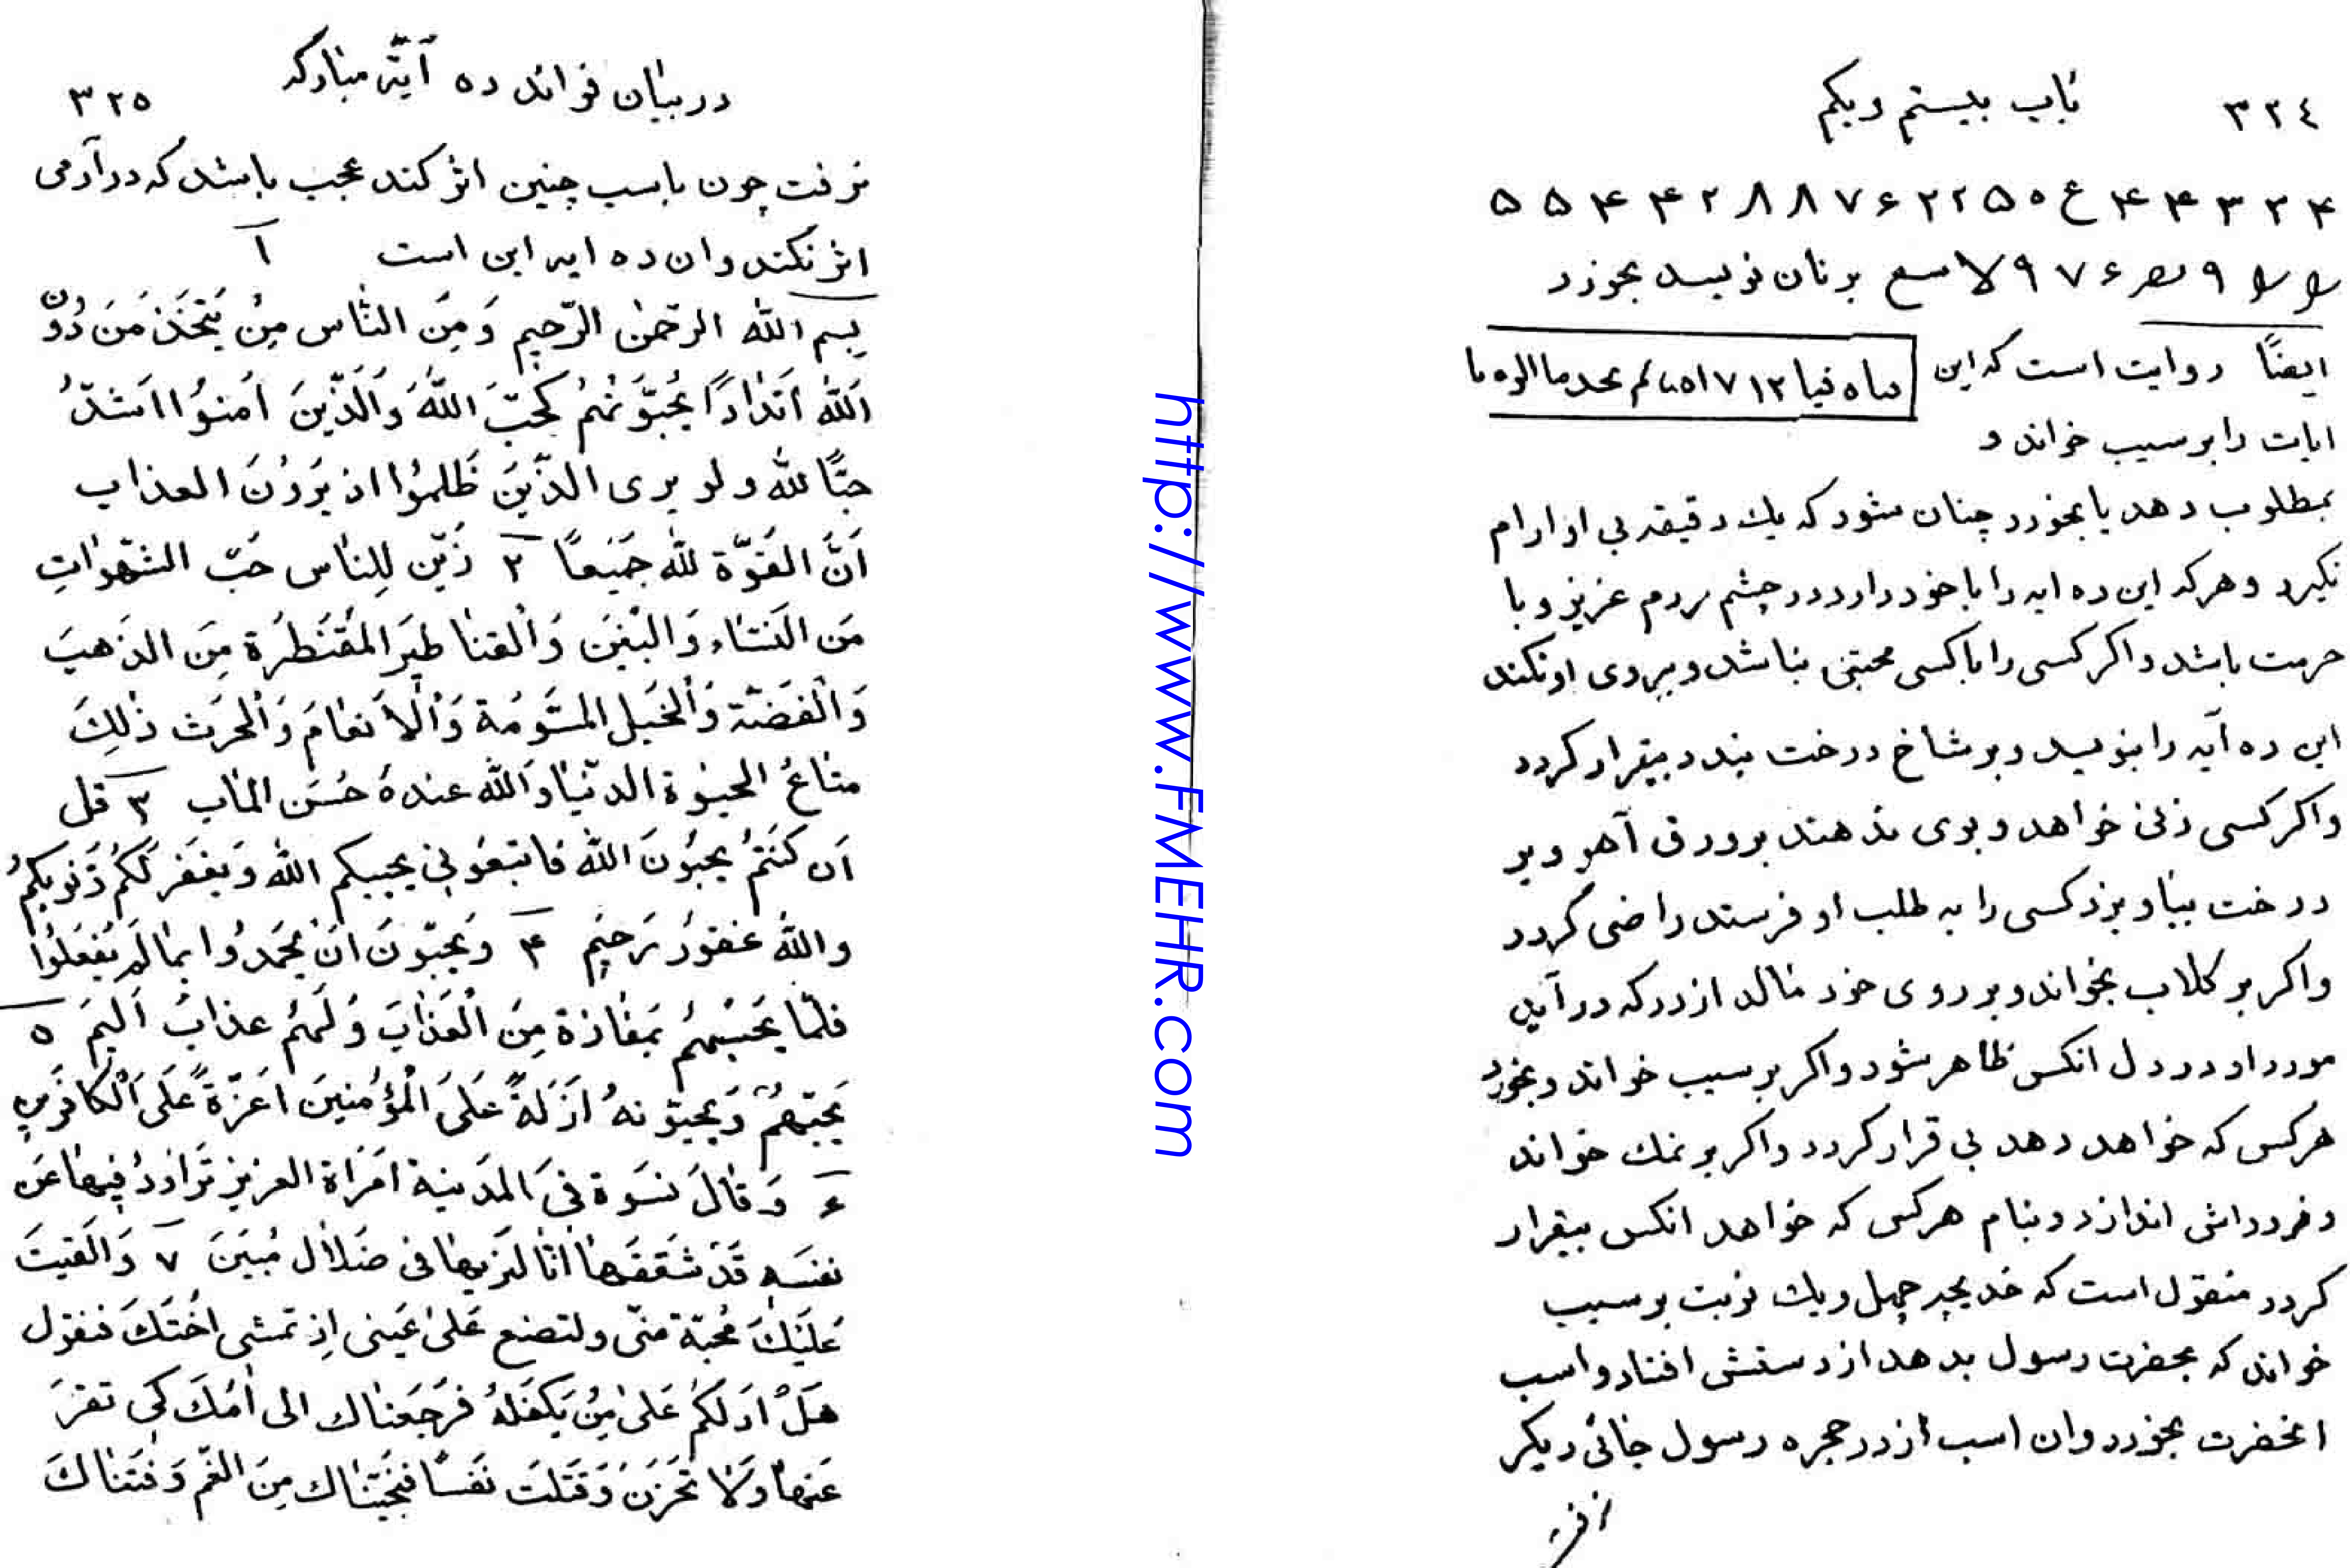 ٣٢٤ باب بیستم ویکم
۴ ٣ ٣ ۴ ۴ ع ٥ ۵ ٢ ٢ ٢ ۶ ٧ ٨ ٨ ٢ ۴ ۴ ۵ ۵
٩ ۶ ٧ ٩ لا برنان نویسد بخورد
ایضًا روایت است که این
ایات را بر سیب خواند و
بمطلوب دهد یا بخورد چنان شود که یك دقیقه بی او ارام
نگیرد و هر که این ده ایه را با خود دارد در چشم مردم عزیز و با
حرمت باشد و اکر کسی را با کسی محبتی نباشد و بروی او نکند
این ده آیه را بنویسد و بر شاخ درخت بندد بیقرار کردد
واکر کسی زنی خواهد و بوی ندهند بر ورق آهو و بر
درخت بیاویزد کسی را به طلب او فرستد راضی گردد
واکر بر کلاب بخواند و بر روی خود مالد از در که در آید
مورد او در دل انکس ظاهر شود واکر بر سیب خواند و بخورد
هرکس که خواهد دهد بی قرار کردد واکر بر نمك خواند
و فرو داش اندازد و بنام هرکس که خواهد انکس بیقرار
کردد منقول است که خدیجه چهل و یك نوبت بر سیب
خواند که بحضرت رسول بدهد از دستش افتاد و اسب
انحضرت بخورد و ان اسب از در حجره رسول جائی دیکر
نرفت
در بیان فوائد ده آیۀ مبارکه ٣٢٥
نرفت چون باسب چنین اثر کند عجب باشد که در آدمی
اثر نکند و ان ده ایه این است ١
بِسم الله الرحمن الرّحیم وَمِنَ النّاس مِنُ یَتخَذ مَنَ دُوّن
اَلله اَندٰادًا یُحبّوَنهُم کَحبّ اللّهَ وَالَّذّینَ اٰمنوُا اَشدّ
حبًّا لله و لو یری الذّینَ ظَلموُا اذ یَرَوُنَ العذاب
اَنَّ القَوّة لله جَمَیعًا ٢ زَیّن لِلناس حَبّ الشهَوٰاتِ
مَن النسٰاء وَالبْنَین وَالقنٰاطیَر المَقنَطرَة مِنَ الذَهبَ
وَالفَضّة وَالخَیل المسّوَمَة وَالاَنعٰامَ وَالحَرَث ذٰلِكَ
متاعُ الحیوٰة الدّنیٰا وَالله عندهُ حُسَن المٰاب ٣ قل
اَن کنَتمُ یحبّوُنَ الله فاتبعَوُنی یحببکم الله وَیغَفَر لکمُ ذَنوبکمُ
والله غفوُر رَحیَم ۴ وَیحبّوُنَ انَ یحَمَدوُا بمٰا لَم یَفعَلوُا
فلٰا یحَسَبنهمُ بمَفٰازة مِنَ اَلعَذٰابَ وَلَهمُ عذابُ اَلیمَ ۵
یحبّهمُ وَیحبّوُنهُ اَذَلة عَلیَ المُؤمُنینَ اعَزّة عَلَی اَلکافرَین
۶ وَ قٰالَ نسَوَة فیَ المَدَینة امَرَاة العزیز تَرٰاوَدُ فیٰهٰا عَن
نفسَه قَدَ شَغَفَهٰا انٰا لنَریٰهٰا فی ضَلاٰل مُبیَن ٧ وَالَقیتَ
عَلَیَكَ مُحبّة منّی ولتصنع عَلیٰ عَینی اِذ تمشی اخُتكَ فتقول
هَلَ ادَلکمُ عَلیٰ مِنُ یَکفَلهُ فَرَجَعَنٰاك الی اُمَكَ کی تقَرَ
عَینهٰا وَلاٰ تحَزَنَ وَقَتَلتَ نَفسًا فنَجّینٰاك مِنَ الغَم وَفتَنٰاكَ
http://www.FMEHR.com